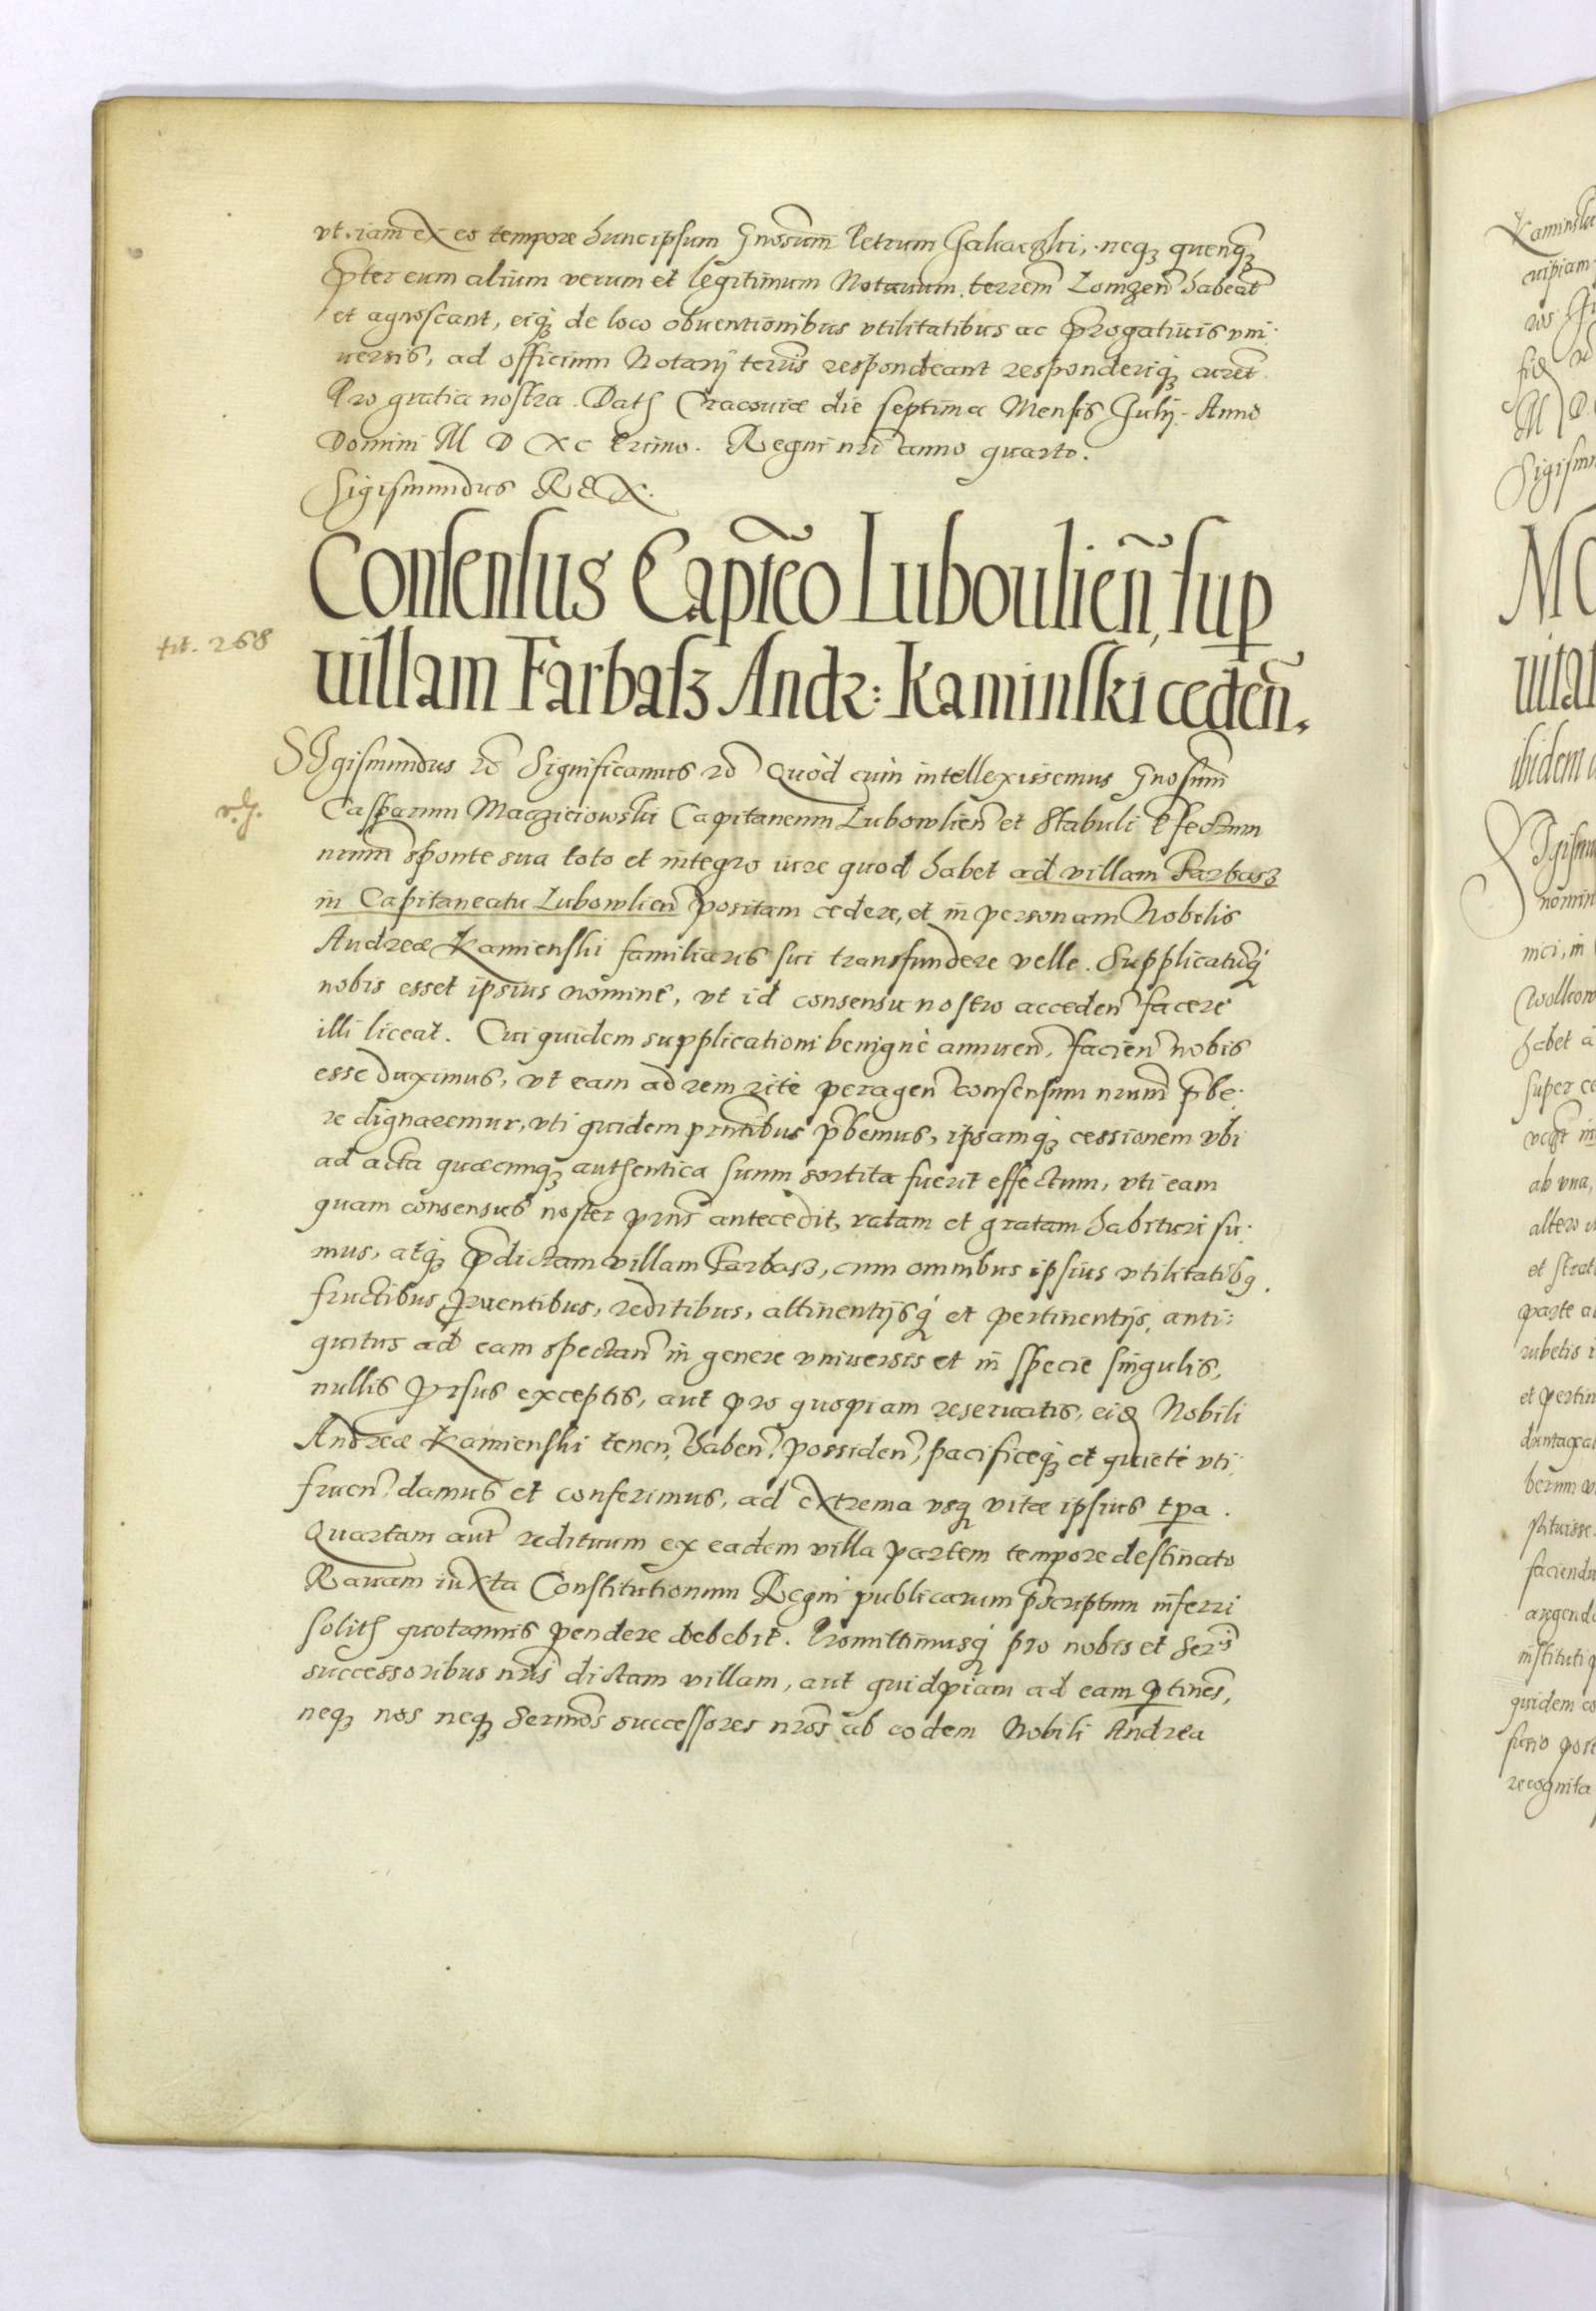 vt iam ex eo tempore hunc ipsum Gnosum Petrum neq3 quenq3
pter eum alium verum et legitimum Notarium terrem Lomzen habeat
et agnoscant, eiq3 de loco obuentionibus vtilitatibus ac progatiuis vni:
uersis, ad officium Notarij terris respondeant responderiq3 curet
Pro gratia nostra. Dat Cracouiæ die septima Mensis Julij. Anno
Domini M D XC Primo. Regni nri anno quarto.
Sigismundus REX.
Consensus Capteo Luboulien, sup
tit. 268
uillam Farbasz Andr: Kaminski ceden.
SIgismundus Significamus Quòd cùm intellexissemus Gnosum
Casparum Macziciowski Capitaneum Lubowlien et Stabuli Pfectum
nrum sponte sua toto et integro iure quod habet ad villam Farbasz
in Capitaneatu Lubowlien positam cedere, et in personam Nobilis
Andreæ Kamienski familiaris sui transfundere velle. Supplicatuq3
nobis esset ipsius nomine, vt id consensu nostro acceden facere
illi liceat. Cui quidem supplicationi benignè annuen, facien nobis
esse duximus, vt eam ad rem ritè peragen consensum nrum prbe:
re dignaremur, vti quidem prntibus prbemus, ipsamq3 cessionem vbi
ad acta quæcunq3 authentica suum sortita fuerit effectum, vti eam
quam consensus noster prns antecedit, ratam et gratam habituri su:
mus, atq3 pdictam villam Farbasz, cum omnibus ipsius vtilitatibg.
fructibus, prouentibus, reditibus, attinentijsq3 et pertinentijs, anti:
quitus ad eam spectan in genere vniuersis et in specie singulis,
nullis prorsus exceptis, aut pro quopiam reseruatis, eid Nobili
Andreæ Kamienski tenen, haben, possiden, pacificeq3 et quietè vti
fruen, damus et conferimus, ad extrema vsq3 vitæ ipsius tpa.
Quartam aut redituum ex eadem villa partem tempore destinato
Rauam iuxta Constitutionum Regni publicarum pscriptum inferri
solit quotannis pendere debebit. Promittimusq3 pro nobis et Ser:
successoribus nris dictam villam, aut quidpiam ad eam ptines,
neq3 nos neq3 Sermos successores nros ab eodem Nobili Andrea